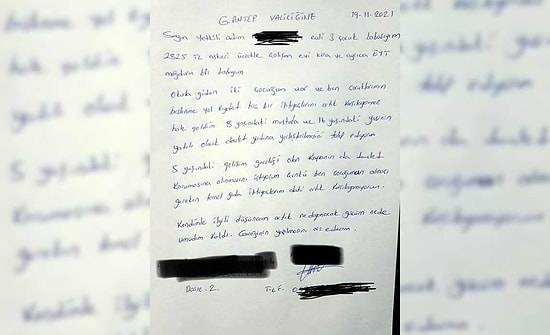 G.ANTEP VALİLİĞİNE 19-11-2021
Sayın yetkili adım evli 3 çocuk babasıyım
2825 TL asgari ücretle çalışan evi kira ve ayrıca EYT
mağduru bir babayım
Okula giden iki çocuğum var ve ben çocuklarımın
beslenme yol kıyafet hiç bir ihtiyaçlarını artık karşılayamaz
hale geldim 8 yaşındaki ve 14 yaşındaki
yatılı olarak devlet yurduna yerleştirilmesini talep ediyorum
5 yaşındaki gelişim geriliği olan kızımın da devlet
korumasına alınmasını istiyorum çünkü ben çocuğumun alması
gereken temel gıda ihtiyaçlarını dahi artık karşılayamıyorum.
Kendimle ilgili düşüncem artık ne dayanacak gücüm nede
umudum kaldı. Gereğinin yapılmasını arz ederim.
Daire. 2. TLF. 0